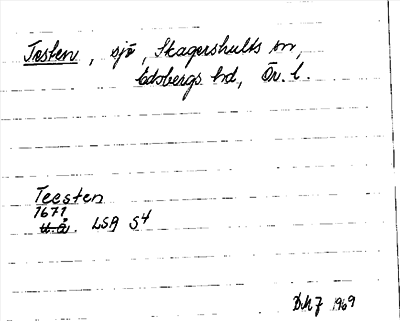 Testen, sjö, Skagershults sn,
Edsbergs hd, Ör. l.
Teesten
1671
u.å. LSA S4
1969